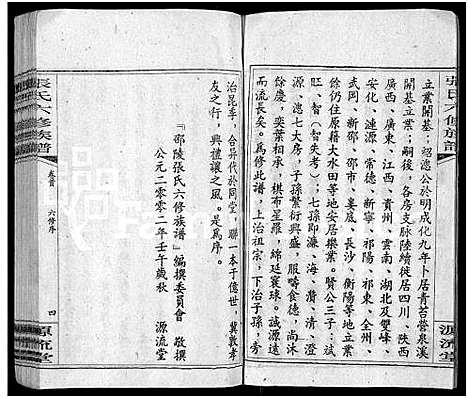 張氏六修族譜
源流堂
立業開基；紹德公於明成化九年卜居青苔營泉溪
開基立業；嗣後，各房支脈陸續徙居四川、陝西
廣西、廣東、江西、貴州、雲南、湖北及雙豐、
安化、漣源、常德、新寧、祁陽、祁東、全州、
武岡、新邵、邵市、婁底、長沙、衡陽等地立業
餘仍住原籍大水田等地安居樂業。賢公三子：
旺、智（智失考）；七孫即濂、海、濟、清、
源、漶七大房，子孫繁衍興盛，服疇食德，尚沐
餘慶，奕葉相承，棋布星羅，綿延寰球。誠源遠
而流長矣。為修此譜，上治祖宗，下治子孫，旁
治昆季，合昇代於同堂，聯一本于億世，冀敦孝
友之行，興禮讓之風。是爲序。
『邵陵張氏六修族譜』編撰委員會 敬撰
公元二零零二年壬午歲秋 源流堂
張氏六修族譜
卷首 六修序
四
源流堂